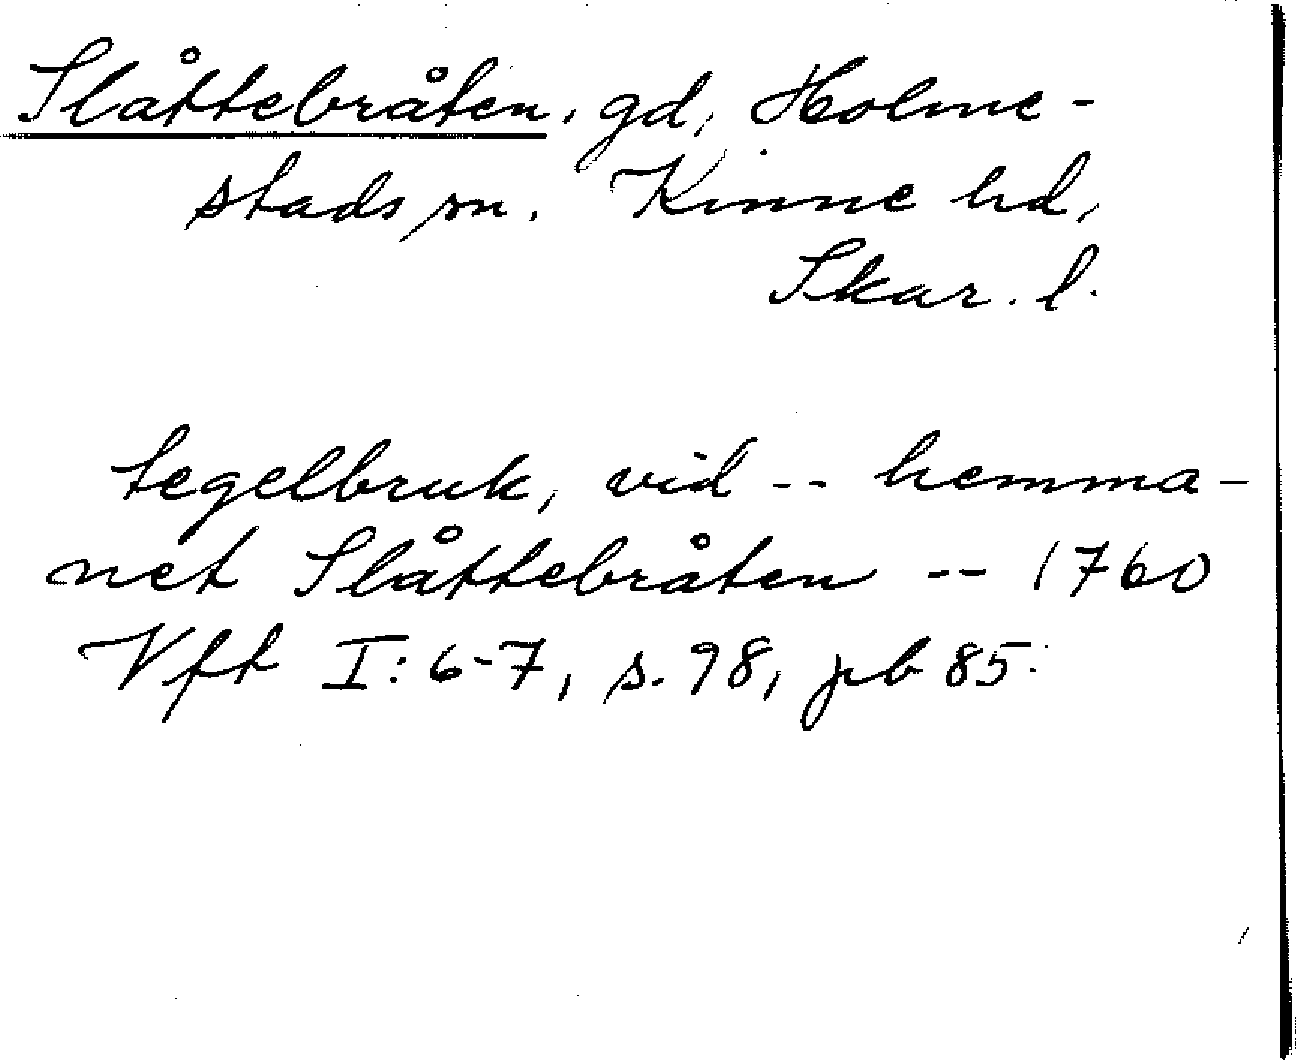 Slåttebråten, gd, Holme-
stads sn. Kinne hd,
Skar. l.
tegelbruk, vid -- hemma-
net Slåttebråten -- 1760
Vft I: 6-7, s. 98, pb 85.